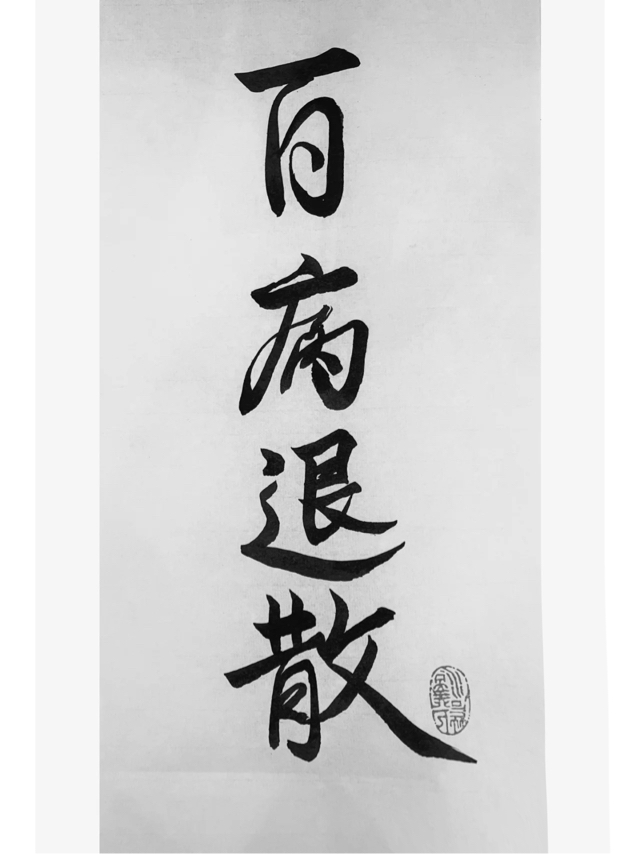 百病退散